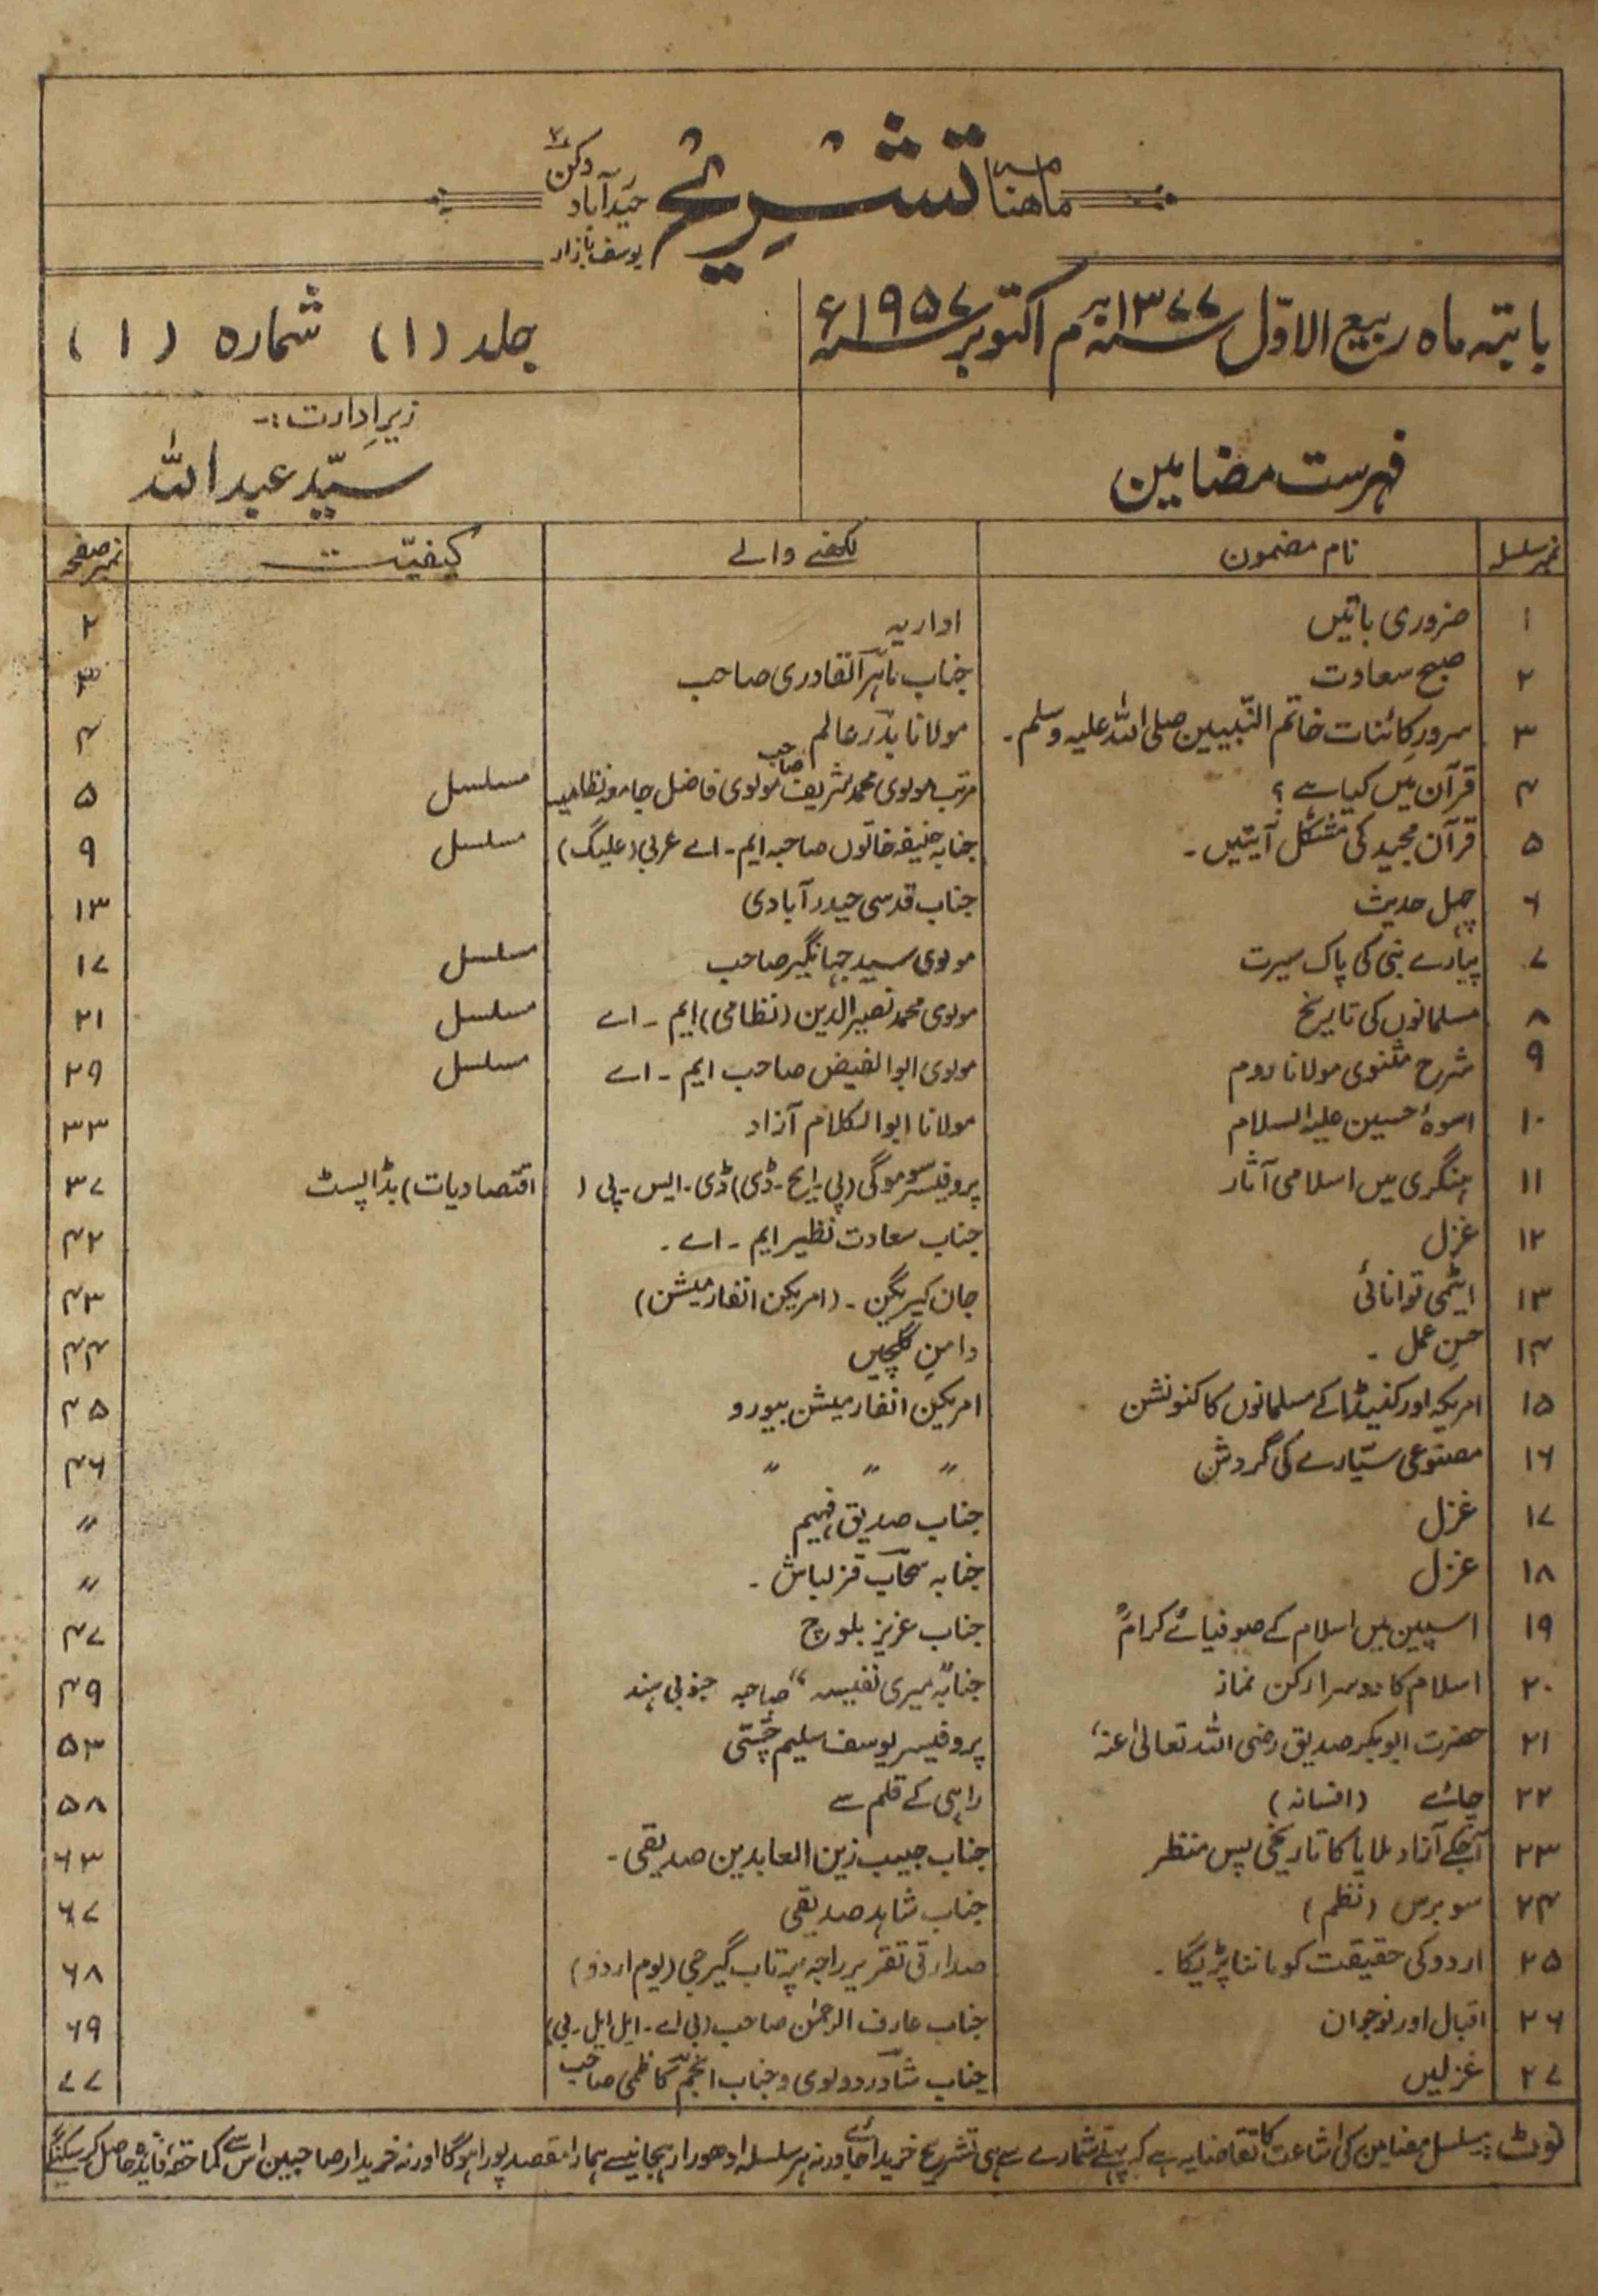 ماہنامہ تشریح یوسف بازار حیدرآباد دکن
بابتہ ماہ ربیع الاوّل سنہ ۱۳۷۷ھ م اکتوبر سنہ ۱۹۵۷ء
جلد (۱) شمارہ (۱)
فہرست مضامین
زیرِ ادارت :-
سیّد عبداللہ
نمبر سلسلہ نام مضمون لکھنے والے کیفیّت نمبر صفحہ
۱ ضروری باتیں اداریہ ۲
۲ صبح سعادت جناب ماہر القادری صاحب ۳
۳ سرورِ کائنات خاتم النّبیین صلی اللہ علیہ وسلم ۔ مولانا بدر عالم ۴
۴ قرآن میں کیا ہے ؟ مرتب مولوی محمد شریف صاحب مولوی فاضل جامعہ نظامیہ مسلسل ۵
۵ قرآن مجید کی مشکل آیتیں ۔ جنابہ حنیفہ خاتون صاحبہ ایم ۔ اے عربی (علیگ) مسلسل ۹
۶ چہل حدیث جناب قدسی حیدرآبادی ۱۳
۷ پیارے نبی کی پاک سیرت مولوی سید جہانگیر صاحب مسلسل ۱۷
۸ مسلمانوں کی تاریخ مولوی محمد نصیر الدین (نظامی) ایم ۔ اے مسلسل ۲۱
۹ شرح مثنوی مولانا روم مولوی ابوالفیض صاحب ایم ۔ اے مسلسل ۲۹
۱۰ اسوۂ حسین علیہ السلام مولانا ابوالکلام آزاد ۳۳
۱۱ ہنگری میں اسلامی آثار پروفیسر سوموگی (پی ۔ ایچ ۔ ڈی) ڈی ۔ ایس ۔ پی (اقتصادیات) بڈاپسٹ ۳۷
۱۲ غزل جناب سعادت نظیر ایم ۔ اے ۔ ۴۲
۱۳ ایٹمی توانائی جان کیریگن ۔ (امریکن انفارمیشن) ۴۳
۱۴ حسنِ عمل ۔ دامنِ گلچیں ۴۴
۱۵ امریکہ اور کنیڈا کے مسلمانوں کا کنونشن امریکین انفارمیشن بیورو ۴۵
۱۶ مصنوعی سیّارے کی گردش " " " ۴۶
۱۷ غزل جناب صدیق فہیم "
۱۸ غزل جنابہ سحاب قزلباش ۔ "
۱۹ اسپین میں اسلام کے صوفیائے کرامؒ جناب عزیز بلوچ ۴۷
۲۰ اسلام کا دوسرا رکن نماز جنابہ "میری نفیسہ" صاحبہ جنوبی ہند ۴۹
۲۱ حضرت ابوبکر صدیق رضی اللہ تعالیٰ عنہ پروفیسر یوسف سلیم چشتی ۵۳
۲۲ چائے (افسانہ) راہی کے قلم سے ۵۸
۲۳ آجکے آزاد ملایا کا تاریخی پس منظر جناب حبیب زین العابدین صدیقی ۔ ۶۳
۲۴ سو برس (نظم) جناب شاہد صدیقی ۶۷
۲۵ اردو کی حقیقت کو ماننا پڑیگا ۔ صدارتی تقریر راجہ پرتاب گیر جی (یوم اردو) ۶۸
۲۶ اقبال اور نوجوان جناب عارف الرحمٰن صاحب (بی اے ۔ ایل ایل ۔ بی) ۶۹
۲۷ غزلیں جناب شاد ردولوی و جناب انجم کاظمی صاحب ۷۷
نوٹ :۔ مسلسل مضامین کی اشاعت کا تقاضا یہ ہے کہ پہلے شمارے سے ہی تشریح خریدا جائے ورنہ ہر سلسلہ ادھورا رہجانیسے ہمارا مقصد پورا ہوگا اور نہ خریدار صاحبین اس سے کماحقہٗ فائدہ حاصل کرسکینگے